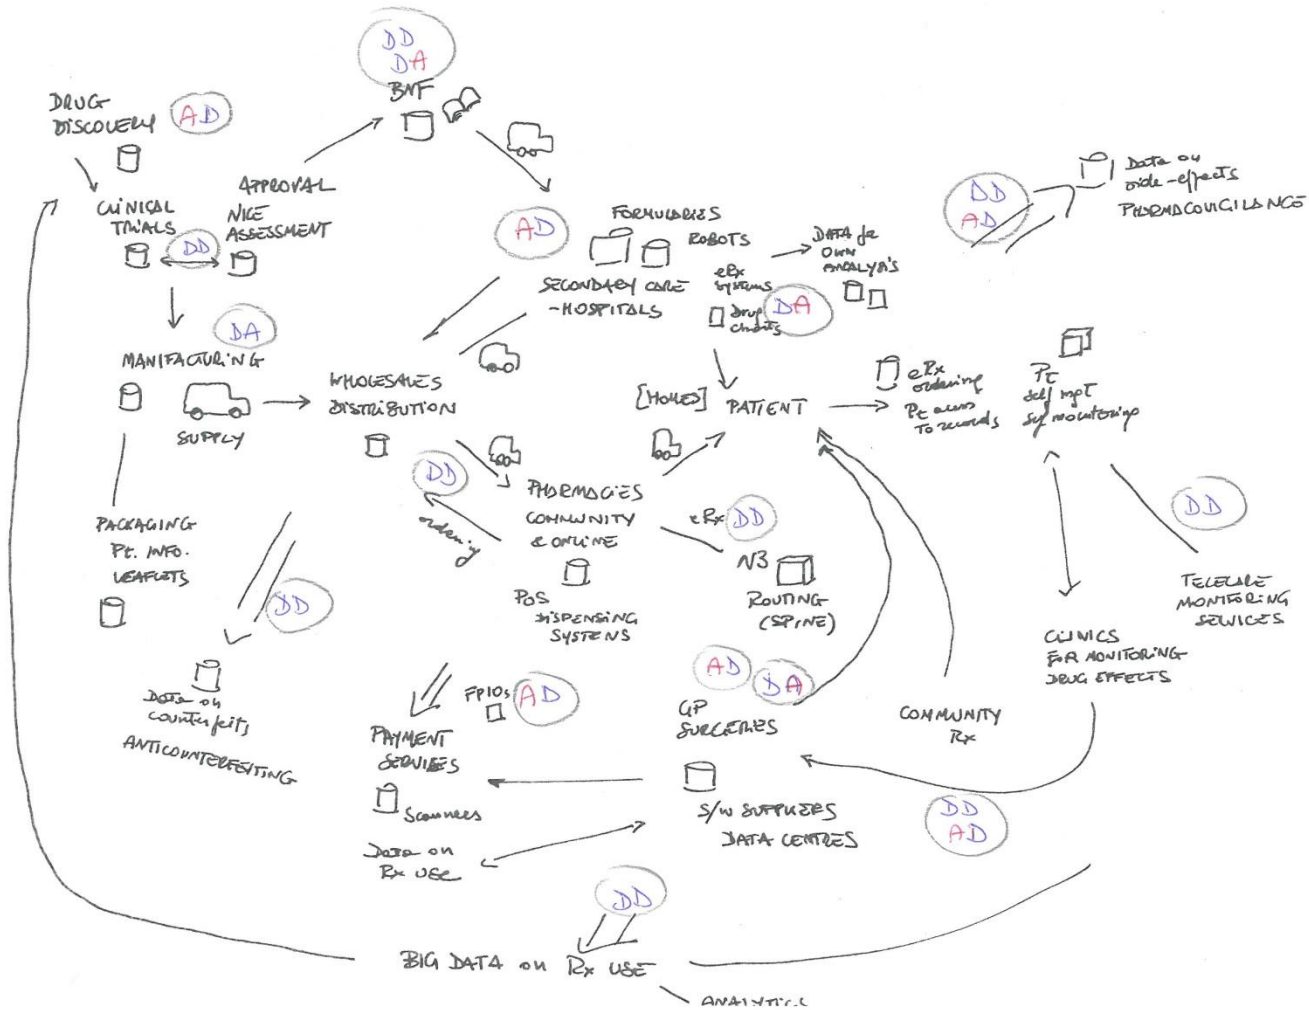 DD
DA
BNF
DRUG
DISCOVERY
AD
CLINICAL
TRIALS
DD
APPROVAL
NICE
ASSESSMENT
AD
FORMULARIES
ROBOTS
SECONDARY CARE
-HOSPITALS
eRx
systems
Drug
charts
DA
DATA for
OWN
ANALYSIS
DD
AD
Data on
side-effects
PHARMACOVIGILANCE
DA
MANIFACTURING
SUPPLY
WHOLESALES
DISTRIBUTION
[HOMES]
PATIENT
eRx
ordering
Pt access
To records
Pt
self mgt
Sy monitoring
DD
ordering
PHARMACIES
COMMUNITY
& ONLINE
POS
DISPENSING
SYSTEMS
eRx
DD
N3
ROUTING
(SPINE)
DD
TELECARE
MONITORING
SERVICES
CLINICS
FOR MONITORING
DRUG EFFECTS
PACKAGING
Pt. INFO.
LEAFLETS
DD
Data on
counterfeits
ANTICOUNTERFEITING
FP10s
AD
PAYMENT
SERVICES
Scanners
Data on
Rx USE
AD
DA
GP
SURGERIES
S/W SUPPLIERS
DATA CENTRES
COMMUNITY
Rx
DD
AD
DD
BIG DATA on Rx USE
ANALYTICS